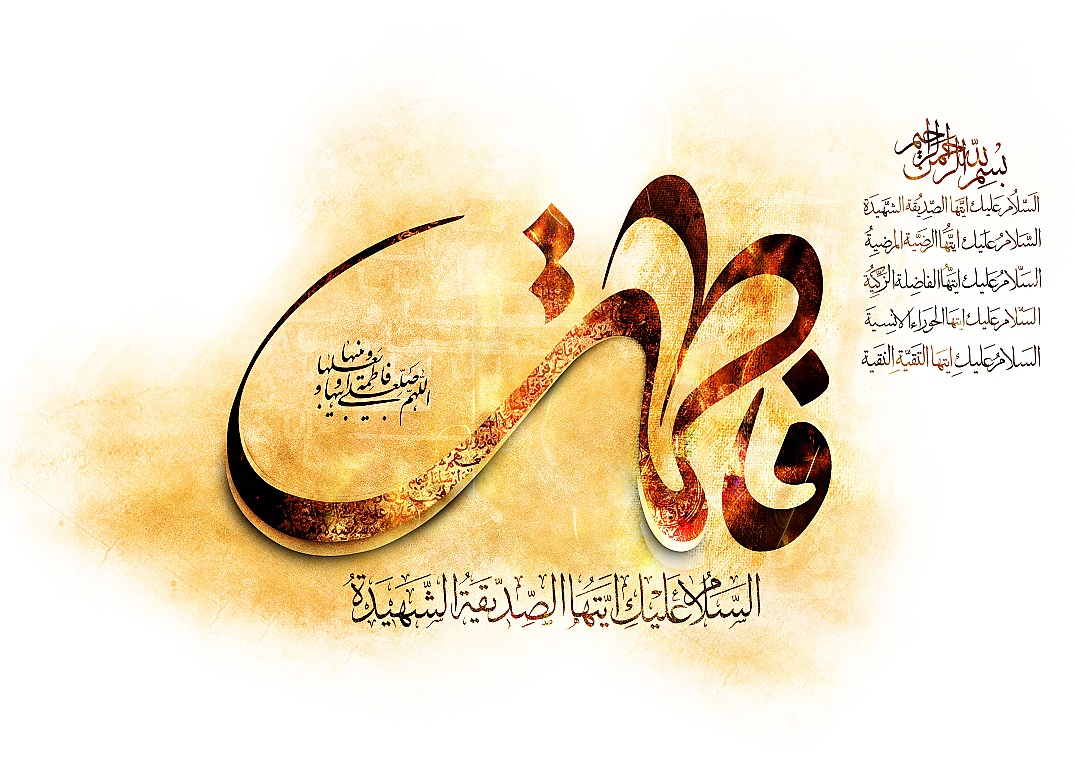 بسم الله الرحمن الرحيم
السَّلامُ عَلَيكِ ايَّتُهَا الصِّدِّيقَة الشَّهيدَة
السَّلامُ عَلَيكِ ايَّتُهَا الرَّضيَّة المرضيةُ
السَّلامُ عَلَيكِ ايَّتُهَا الفاضِلة الزَّكيَّة
السَّلامُ عَلَيكِ ايتها الحَوراء الانسية
السَّلامُ عَلَيكِ ايتها التَقيَّة النَقية
فاطمة
اللهم صل على فاطمة و ابيها و بعلها و بنيها
السَّلامُ عَلَيكِ ايَّتُهَا الصِّدِّيقَةُ الشَّهيدَةُ